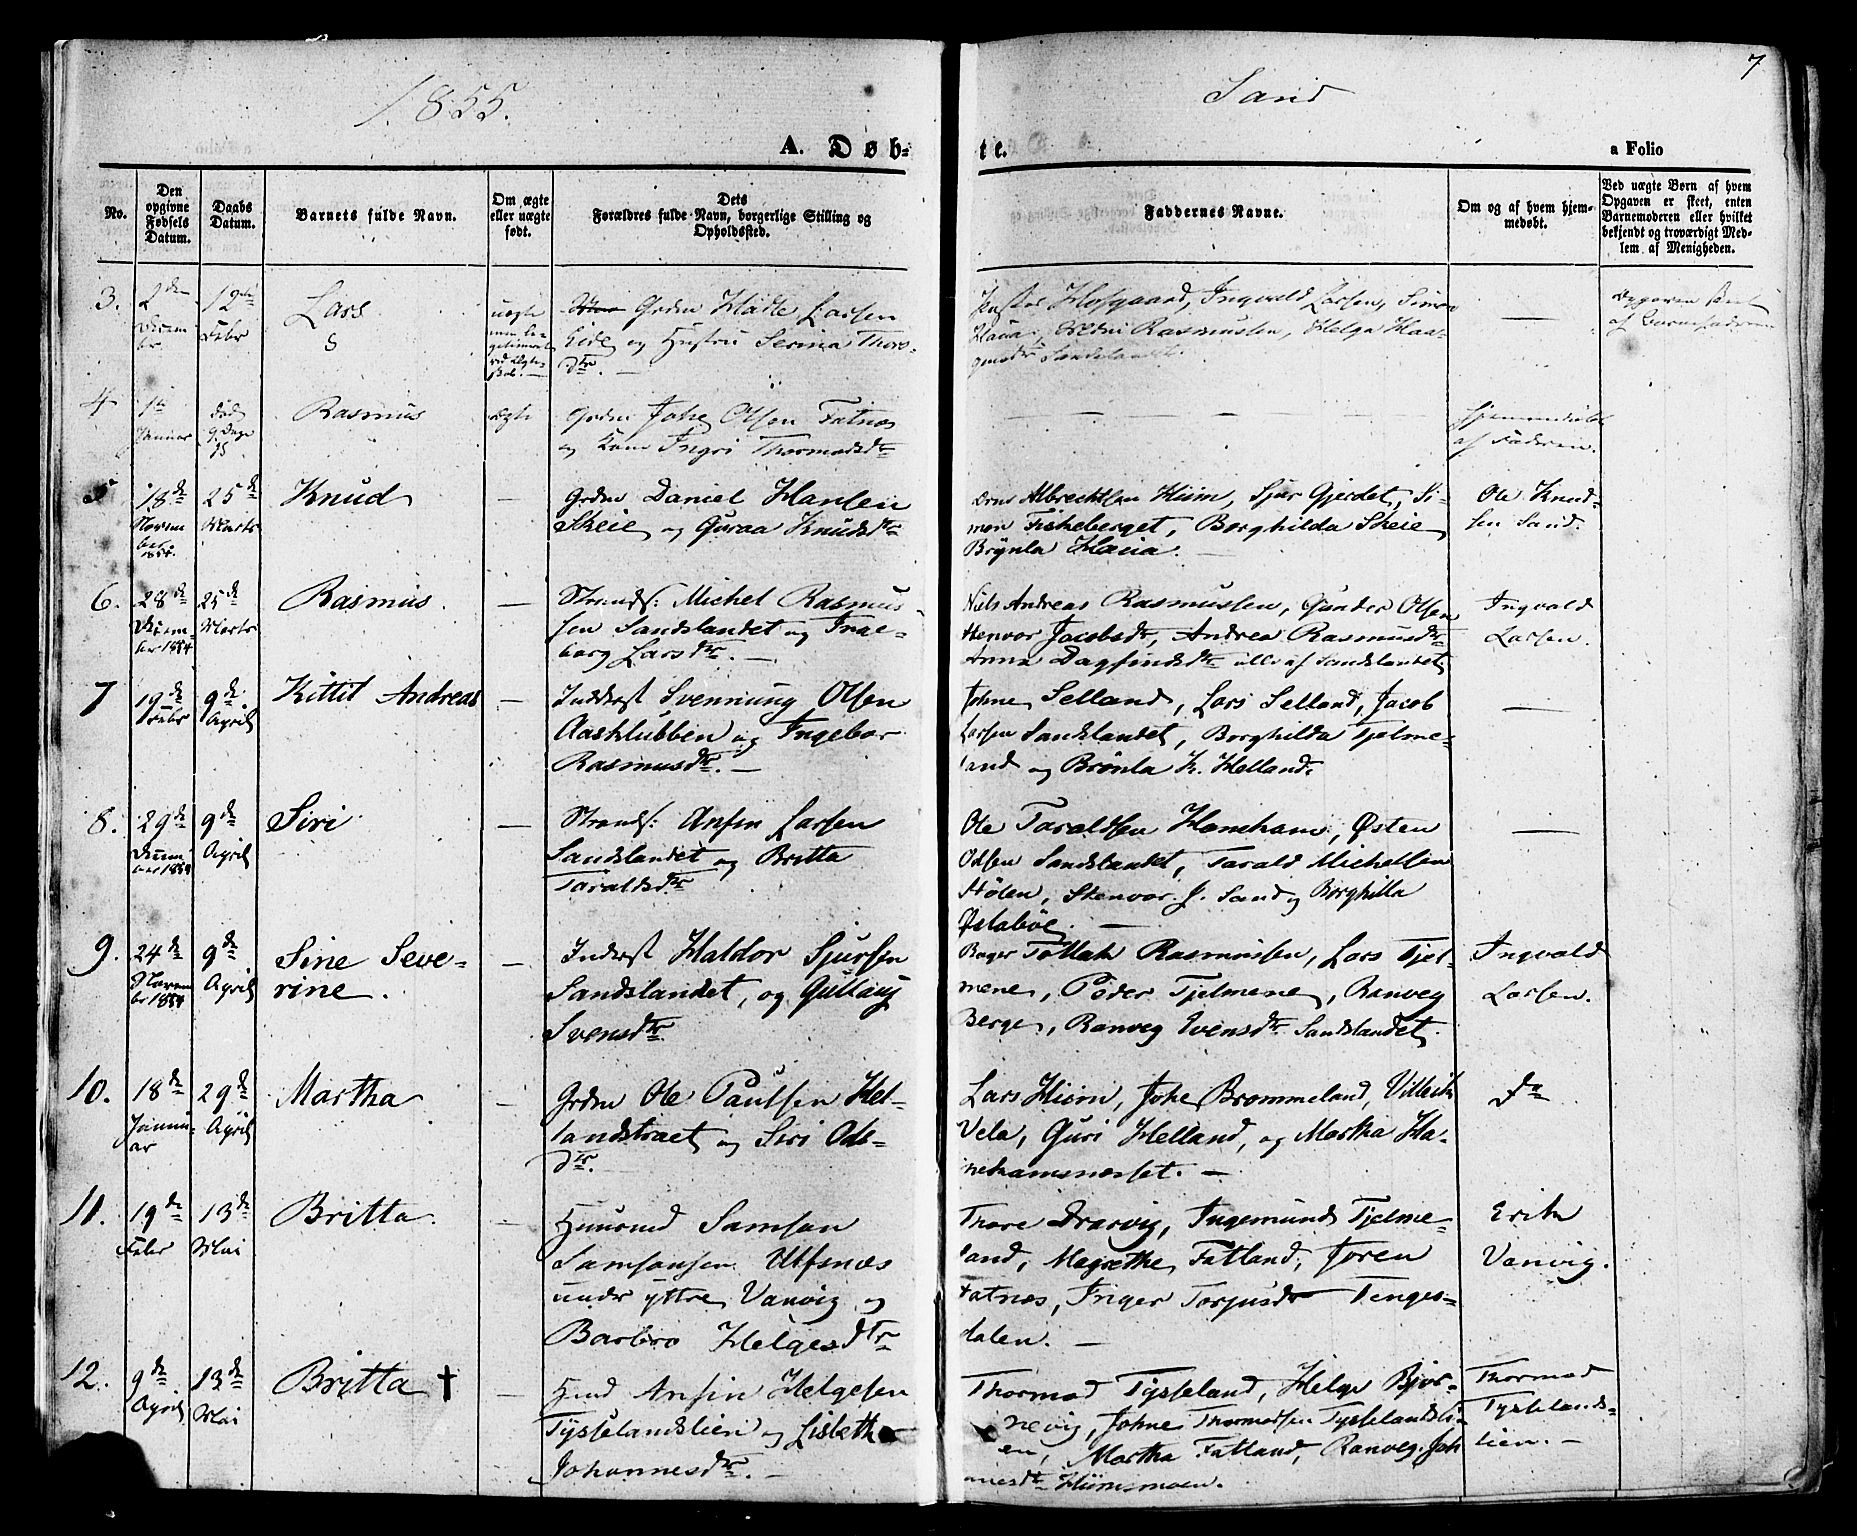 1855.
Sand
7
A. Døb-
te.
a Folio
No.
Den opgivne Fødsels Datum.
Daabs Datum.
Barnets fulde Navn.
Om ægte eller uægte født.
Dets Forældres fulde Navn, borgerlige Stilling og Opholdssted.
Faddernes Navne.
Om og af hvem hjemmedøbt.
Ved uægte Børn af hvem Opgaven er skeet, enten Barnemoderen eller hvilket bekjendt og troværdigt Medlem af Menigheden.
3.
2den
Decem
ber
12te
Febr
Lars
uægte
Grdm Lars
Eide og Hustru Serina Thors-
dtr. —
Hofgaard, Ingvald Larsen, Simon
Rasmussen, Helga Haa-
Sandslandet.
—
Opgaven skeet
af Barnefaderen
4
1ste
Januar
død
9 Dage
Rasmus
ægte
Grdm Johs Olsen Fatnæs
og Kone Ingri Thormodsdtr
— — — —
Hjemmedøbt
af Faderen.
5
18de
Novem
ber
1854.
25de
Marts
Knud
—
Grdm Daniel Hansen
Skeie og Guraa Knudsdtr
Albrechtsen Hiim, Sjur Gjerdet, Si-
mon Fiskeberget, Borghilda Skeie
Brynla Havia. —
Ole Knud-
sen Sand.
6.
28de
Decem-
ber 1854
25de
Marts
Rasmus.
—
Strands: Michel Rasmus-
sen Sandslandet og Inge-
borg Larsdtr. —
Niels Andreas Rasmussen, Gunder Olsen
Stenvor Jacobsdtr, Andrea Rasmusdtr
Anna Dagfindsdtr alle af Sandslandet
Ingvald
Larsen.
7
19de
Febr
9de
April
Kittil Andreas
—
Inderst Svennung Olsen
Aasklubben og Ingebor
Rasmusdtr. —
Johne Selland, Lars Selland, Jacob
Larsen Sandslandet, Borghilda Tjelme-
land og Brønla K. Helland.
—
8.
29de
Decem
ber 1854
9de
April
Siri
—
Strands: Ansin Larsen
Sandslandet og Britta
Taraldsdtr
Ole Taraldsen Haneham, Østen
Odsen Sandslandet, Tarald Michelsen
Stølen, Stenvor J. Sand og Borghilla
Østabøe. —
—
9.
24de
Novem
ber 1854
9de
April
Sine Seve-
rine.
—
Inderst Haldor Sjursen
Sandslandet, og Gullaug
Svensdtr.
Bager Tollak Rasmussen, Lars Tjel-
mene, Peder Tjelmene, Ranveg
Berge, Ranveg Svensdtr Sandslandet.
Ingvald
Larsen.
10.
18de
Janu-
ar
29de
April
Martha
—
Grdm Ole Paulsen Hel-
landstraet og Siri Ods-
dtr.
Lars Hiim, Johs Brommeland, Villeik
Vela, Guri Helland, og Martha Ha-
nehamsnesset. —
Do
11.
19de
Febr
13de
Mai
Britta.
—
Huusmd Samson
Samsonsen Ulfsnæs
under yttre Vanvig og
Barbro Helgesdtr
Thore Drarvig, Ingemund Tjelme-
land, Magrethe Fatland, Joren
Fatnæs, Inger Torjusdtr Tenges-
dalen. —
Erik
Vanvig.
12.
9de
April
13de
Mai
Britta †
—
Husmd Ansin Helgesen
Tysselandslien og Lisbeth
Johannesdtr. —
Thormod Tysseland, Helge Bjor-
nevig, Johne Thormodsen Tysselandsli-
en, Martha Fatland, Ranveg Joh
annesdtr Hiimsmoen.
Thormod
Tysselands-
lien. —